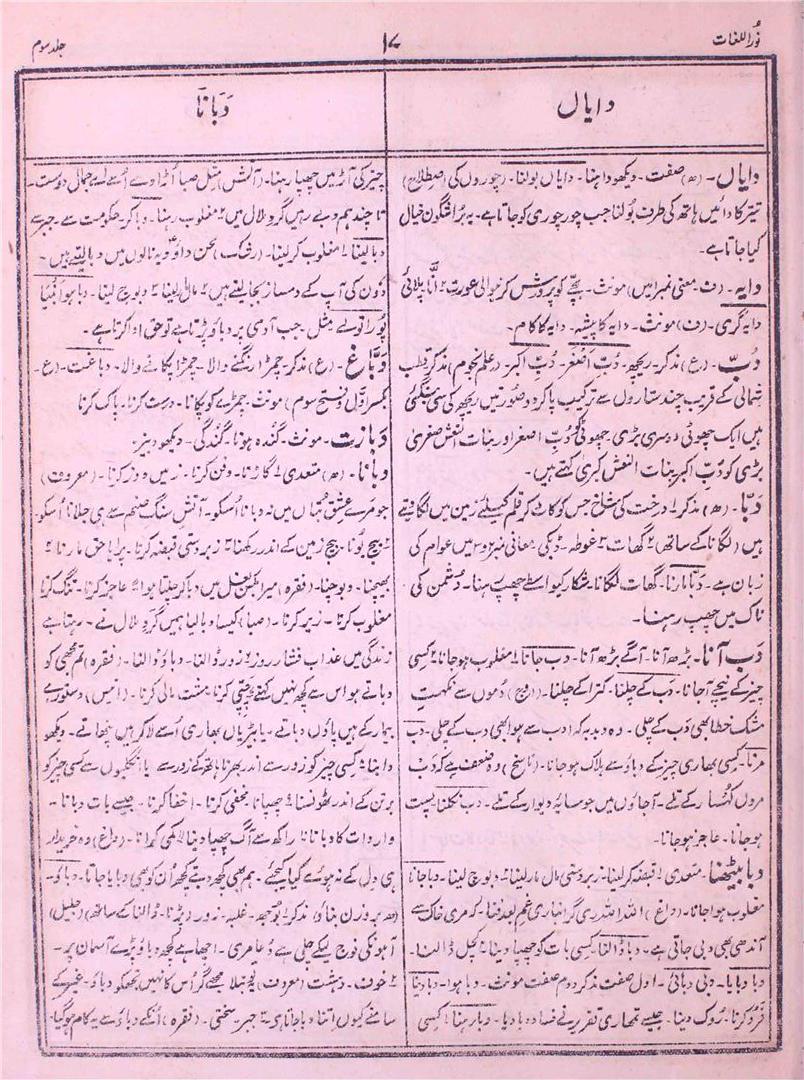 نُور اللغات
۱۷
جلد سوم
دایاں
دَبَانَا
دایاں۔ (ھ) صفت۔ دیکھو داہنا۔ دایاں بولنا۔ (چوروں کی اصطلاح)
تیتر کا دائیں ہاتھ کی طرف بولنا جب چور چوری کو جاتا ہے۔ یہ بُرا شگون خیال
کیا جاتا ہے۔
دایہ۔ (ف معنی نمبر۱میں) مونث۔ بچے کو پرورش کرنیوالی عورت ۲ انّا پلائی
دایہ گری۔ (ف) مونث۔ دایہ کا پیشہ۔ دایہ کا کام۔
دُبّ۔ (ع) مذکر۔ ریچھ۔ دُبِّ اصغر۔ دُبِّ اکبر۔ (علم نجوم) مذکر قطب
شمالی کے قریب چند ستاروں سے ترکیب پاکر دو صورتیں ریچھ کی سی بنگئی
ہیں ایک چھوٹی دوسری بڑی۔ چھوٹی کو دُبِّ اصغر اور بنات النعش صغریٰ
بڑی کو دُبِّ اکبر بنات النعش کبریٰ کہتے ہیں۔
دبّا۔ (ھ) مذکر ۱ درخت کی شاخ جس کو کاٹ کر قلم کیلئے زمین میں لگاتے
ہیں (لگانا کے ساتھ) ۲ گھات ۳ غوطہ۔ ڈبکی۔ معانی نمبر ۲و۳ میں عوام کی
زبان ہے۔ دبّا مارنا۔ گھات لگانا۔ شکار کیواسطے چھپ رہنا۔ دشمن کی
تاک میں چھپ رہنا۔
دَب آنا۔ بڑھ آنا۔ آگے بڑھ آنا۔ دب جانا ۱ مغلوب ہوجانا ۲ کسی
چیز کے نیچے آجانا۔ دَب کے چلنا۔ کترا کے چلنا۔ (اوج) دُموں سے نکہت
مشک خطا بھی دَب کے چلی۔ وہ دبدبہ کہ ادب سے ہوا بھی دب کے چلی۔ دَب
مرنا۔ کسی بھاری چیز کے دباؤ سے ہلاک ہوجانا۔ (ناسخ) وہ ضعف ہے کہ دَب
مروں کہسار کے تلے۔ آجاؤں میں جو سایۂ دیوار کے تلے۔ دب نکلنا پست
ہوجانا۔ عاجز ہوجانا۔
دبا بیٹھنا۔ متعدی ۱ قبضہ کرلینا۔ زبردستی مال مارلینا ۲ دبوچ لینا۔ دبا جانا
مغلوب ہوا جانا۔ (داغ) اللہ اللہ ری گرانباری غم بعد فنا۔ کہ مری خاک سے
آندھی بھی دبی جاتی ہے۔ دبا ڈالنا۔ کسی بات کو چھپا دینا ۲ کچل ڈالنا۔
دبا دبایا۔ دبی دبائی۔ اول صفت مذکر دوم صفت مونث۔ دبا ہوا۔ دبا دینا
فرو کرنا۔ روک دینا۔ جیسے تمھاری تقریر نے فساد دبا دیا۔ دبا رہنا ۱ کسی
چیز کی آڑ میں چھپا رہنا۔ (آتش) مثل صبا اُڑا دے اُسے اے جمالِ دوست۔
تا چند ہم دبے رہیں گرد ملال میں ۲ مغلوب رہنا۔ دبا کر۔ حکومت سے۔ جبر سے
دبا لینا ۱ مغلوب کرلینا۔ (رشک) لحن داؤد یہ نالوں میں دبا لیتے ہیں۔
دُون کی آپ کے دمساز بجا لیتے ہیں ۲ مال لینا ۳ دبوچ لینا۔ دبا ہوا بنیا
پُورا تولے۔ مثل۔ جب آدمی پر دباؤ پڑتا ہے تو حق ادا کرتا ہے۔
دَبّاغ۔ (ع) مذکر۔ چمڑا رنگنے والا۔ چمڑا پکانے والا۔ دباغت۔ (ع۔
بکسر اول و فتح سوم) مونث۔ چمڑے کو پکانا۔ درست کرنا۔ پاک کرنا
دَبازت۔ مونث۔ گندہ ہونا۔ گندگی۔ دیکھو دبیز۔
دَبانا۔ (ھ) متعدی ۱ گاڑنا۔ دفن کرنا۔ زمیں دوز کرنا۔ (معروف)
جو مرے عشق بتاں میں نہ دبانا اُسکو۔ آتش سنگ صنم سے ہی جلانا اُسکو
۲ بیج بونا۔ بیج زمین کے اندر رکھنا ۳ زبردستی قبضہ کرنا۔ پرایا حق مارنا ۴
بھینچنا۔ دبوچنا۔ (فقرہ) میرا بکس بغل میں دباکر چلتا ہوا ۵ عاجز کرنا۔ تنگ کرنا
مغلوب کرنا۔ زیر کرنا۔ (صبا) کیسا دبا لیا ہمیں گرد ملال نے۔ رہتا ہے
زندگی میں عذاب فشار روز ۶ زور ڈالنا۔ دباؤ ڈالنا۔ (فقرہ) تم مجھی کو
دباتے ہو اس سے کچھ نہیں کہتے ۷ چپّی کرنا۔ مشت مالی کرنا۔ (انیس) دستور ہے
بیمار کے ہیں پاؤں دباتے۔ یا بیڑیاں بھاری اُسے لاکر ہیں پنھاتے۔ دیکھو
دابنا ۸ کسی چیز کو زور سے اندر بھرنا ہاتھ کے زور سے یا انگلیوں سے کسی چیز کو
برتن کے اندر ٹھونسنا ۹ چھپانا۔ مخفی کرنا۔ اخفا کرنا۔ جیسے بات دبانا۔
واردات کا دبانا ۱۰ راکھ سے آگ چھپا دینا ۱۱ کمی کرانا۔ (داغ) وہ خریدار
ہی دل کے نہ ہوئے کیا کیجئے۔ ہم بھی کچھ دبتے کچھ اُن کو بھی دبایا جاتا۔ دباؤ۔
(ھ بروزن بناؤ) مذکر ۱ بوجھ۔ غلبہ۔ زور (پڑنا۔ ڈالنا کے ساتھ) (جلیل)
آہونکی فوج لیکے چلی ہے دُعا مری۔ اچھا ہے کچھ دباؤ پڑے آسمان پر۔
۲ خوف۔ دہشت (معروف) پُوجیلا مجھے گر اُس کا نہیں تجھکو دباؤ۔ غیر کے
سامنے کیوں اتنا دبا جاتا ہے ۳ جبر۔ سختی۔ (فقرہ) اُنکے دباؤ سے یہ کام ہوگیا۔